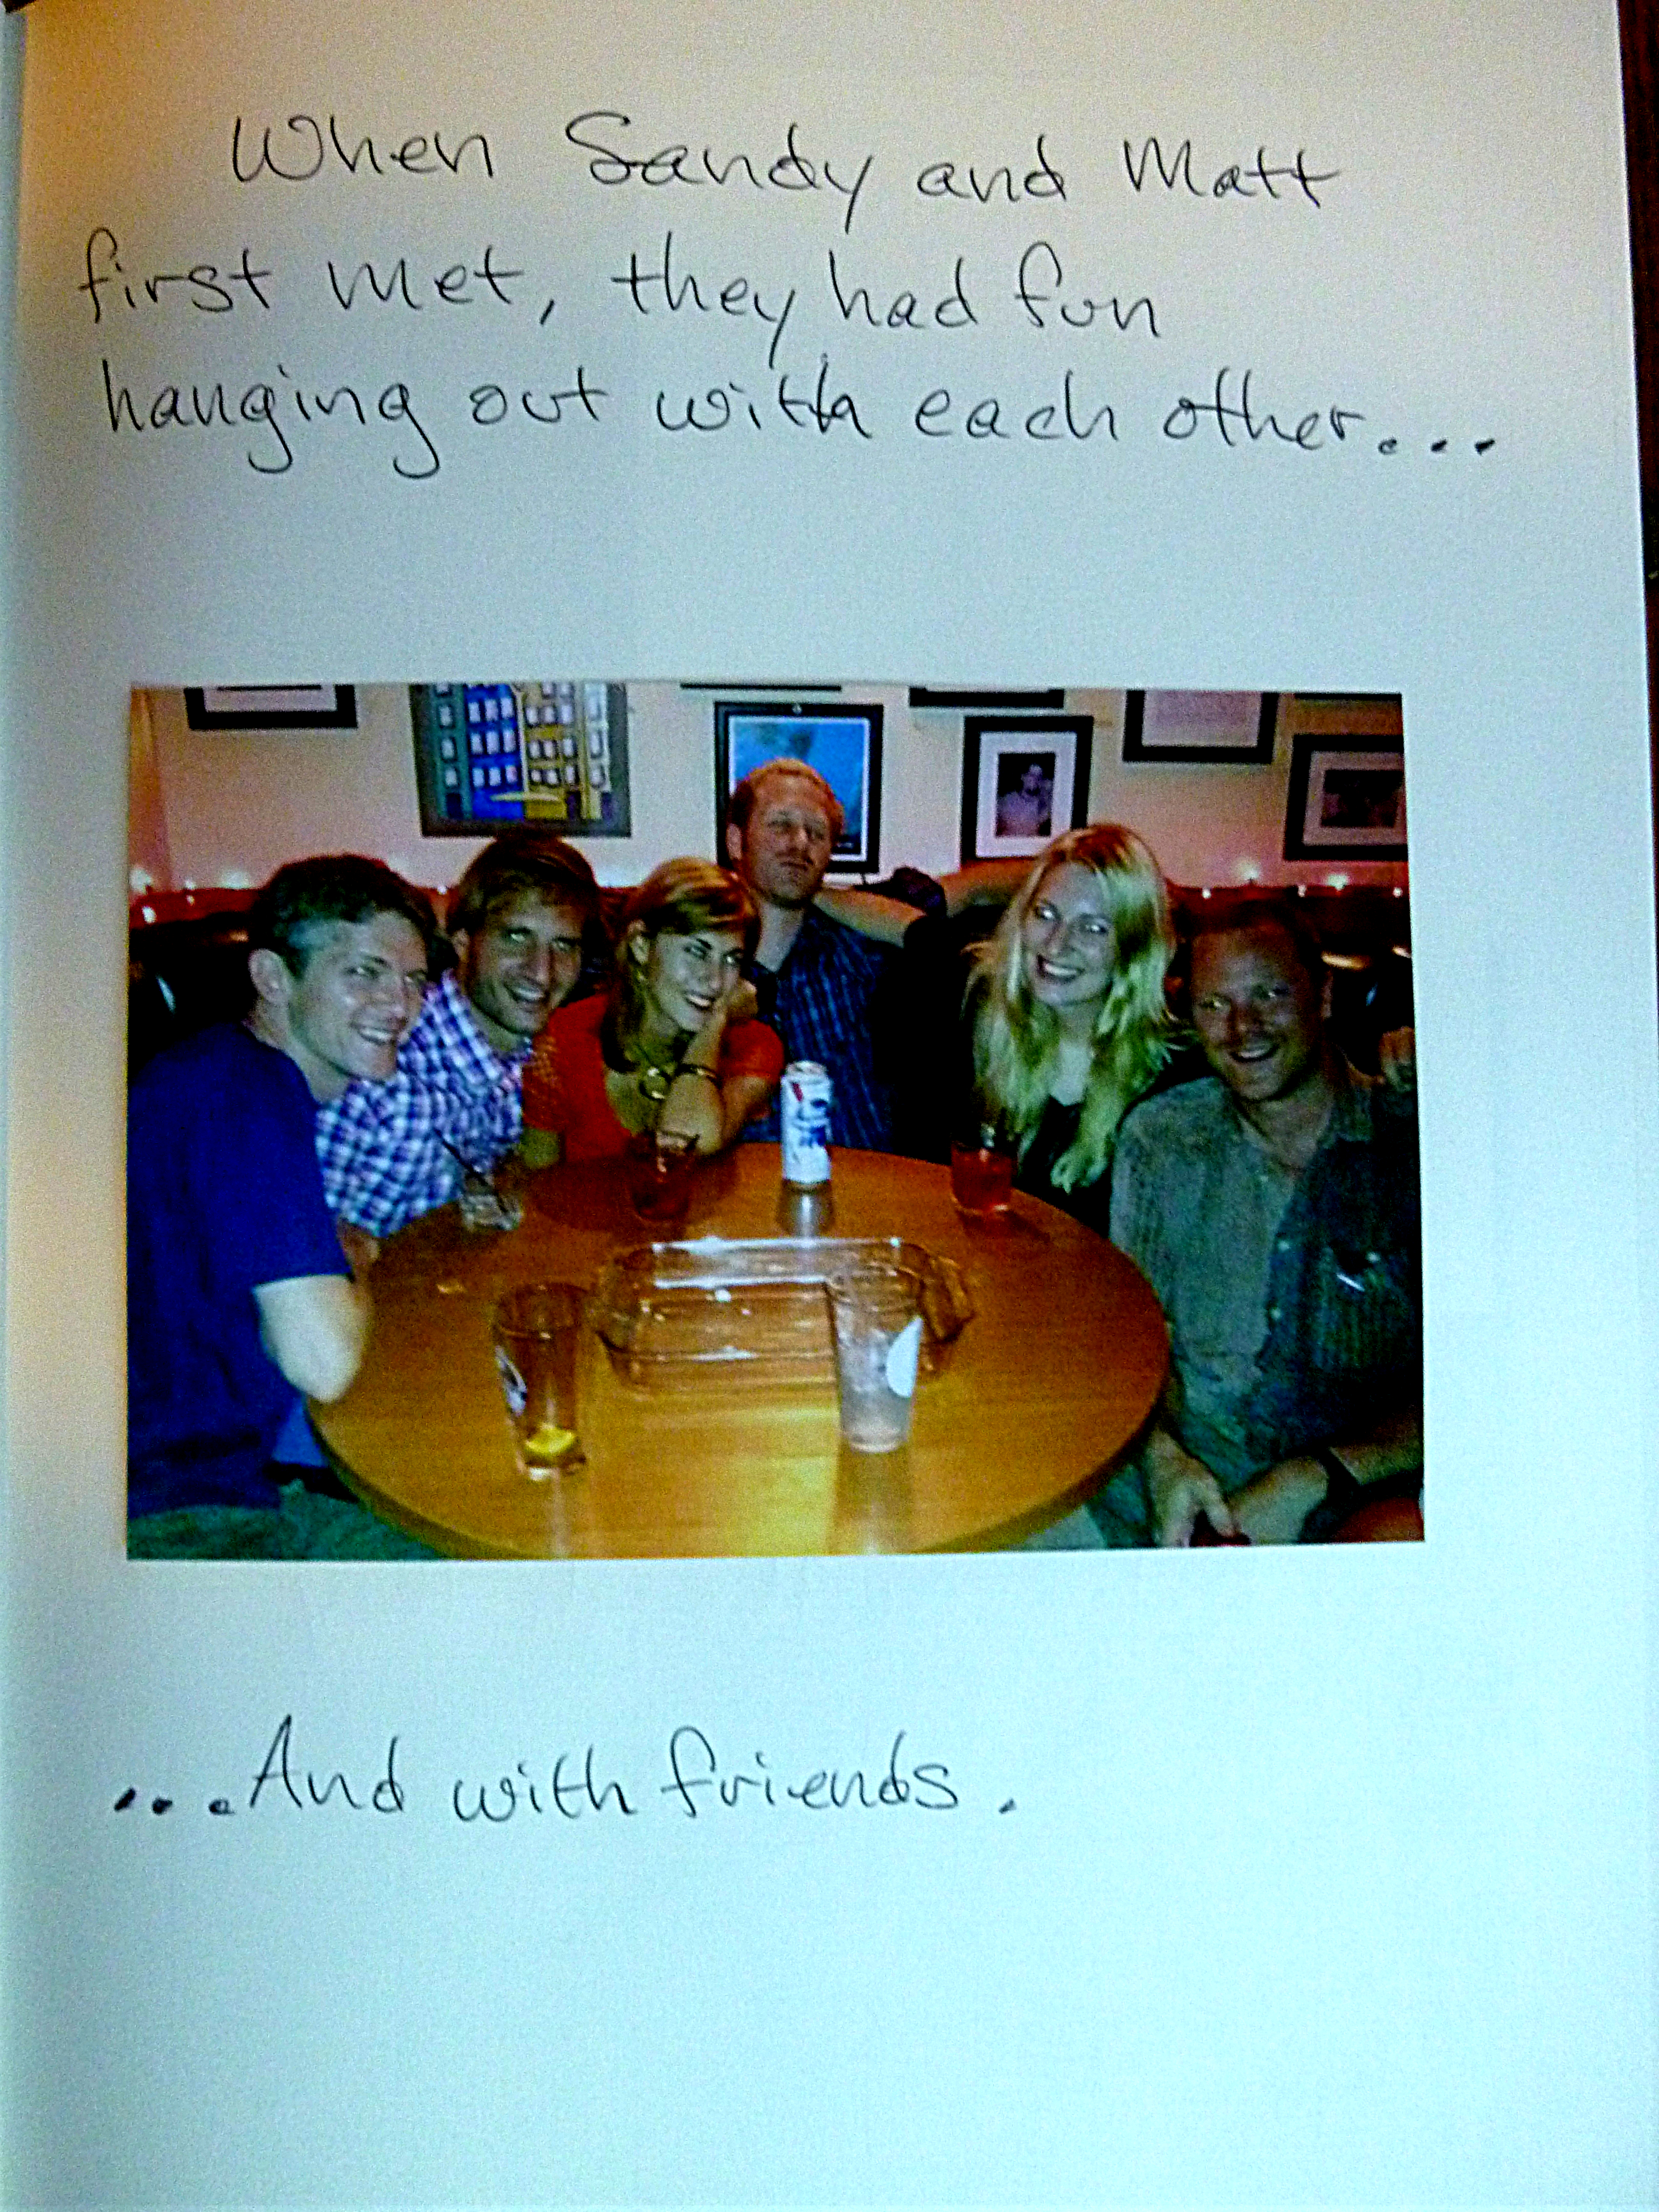 When Sandy and Matt
first met, they had fun
hanging out with each other...
...And with friends.